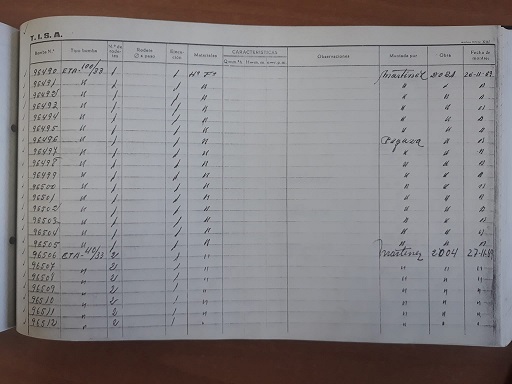 T.I.S.A.
Bomba N.° Tipo bomba N.° de rodetes Rodete Ejecución Materiales CARACTERISTICAS Observaciones Montada por Obra Fecha de montaje
96490 ETA-100/33 1 1 Hº Fº Martinez 2021 26-11-
96491 " 1 1 " " " "
96492 " 1 1 " " " "
96493 " 1 1 " " " "
96494 " 1 1 " " " "
96495 " 1 1 " " " "
96496 " 1 1 " " "
96497 " 1 1 " " " "
96498 " 1 1 " " " "
96499 " 1 1 " " " "
96500 " 1 1 " " " "
96501 " 1 1 " " " "
96502 " 1 1 " " " "
96503 " 1 1 " " " "
96504 " 1 1 " " " "
96505 " 1 1 " " " "
96506 ETA-40/33 2 1 " Martinez 2004 27-11-
96507 " 2 1 " " " "
96508 " 2 1 " " " "
96509 " 2 1 " " " "
96510 " 2 1 " " " "
96511 " 2 1 " " " "
96512 " 2 1 " " " "